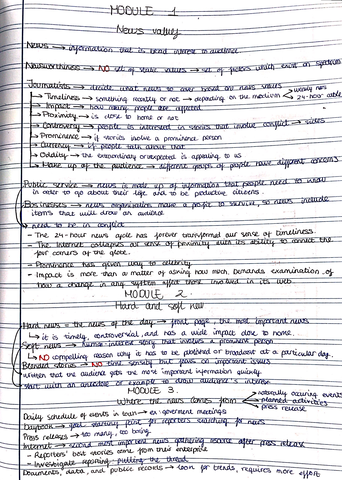 MODULE 1
News values
News → information that is of interest to audience
Newsworthiness → NO set of static values → set of factors which exist on spectrums
Journalists → decide what news to cover based on news values
→ Timeliness → something recently or not → depending on the medium weekly news
24-hour cable
→ Impact → how many people are affected
→ Proximity → is close to home or not
→ Controversy → people is interested in stories that involve conflict → sides
→ Prominence → if stories involve a prominent person
→ Currency → if people talk about that
→ Oddity → the extraordinary or unexpected is appealing to us
→ Make up of the audience → different groups of people have different concerns
Public service → news is made up of information that people need to know
in order to go about their life and to be productive citizens.
Businesses → news organizations make a profit to survive, so news include
items that will draw an audience
→ need to be in conflict
- The 24-hour news cycle has forever transformed our sense of timeliness.
- The Internet collapses our sense of proximity with its ability to connect the
four corners of the globe.
- Prominence has given way to celebrity
- Impact is more than a matter of asking how much. Demands examination of
how a change in any system affect those involved in its web.
MODULE 2
Hard and soft news
Hard news = the news of the day → front page, the most important news
↳ it is timely, controversial, and has a wide impact close to home.
Soft news → human interest story that involves a prominent person
↳ NO compelling reason why it has to be published or broadcast at a particular day.
Blended stories → NO time sensitive but focus on important issues
writers that the audience gets the most important information quickly.
start with an anecdote or example to draw audience's interest
MODULE 3
Where the news comes from naturally occurring events
planned activities
press release
Daily schedule of events in town → ex. government meetings
Daybook → good starting point for reporters searching for news
Press releases → too many, too boring
Internet → second most important news gathering source after press release
- Reporters' best stories come from their enterprise
- Investigate reporting pulling the thread
Documents, data, and public records → look for trends, requires more effort